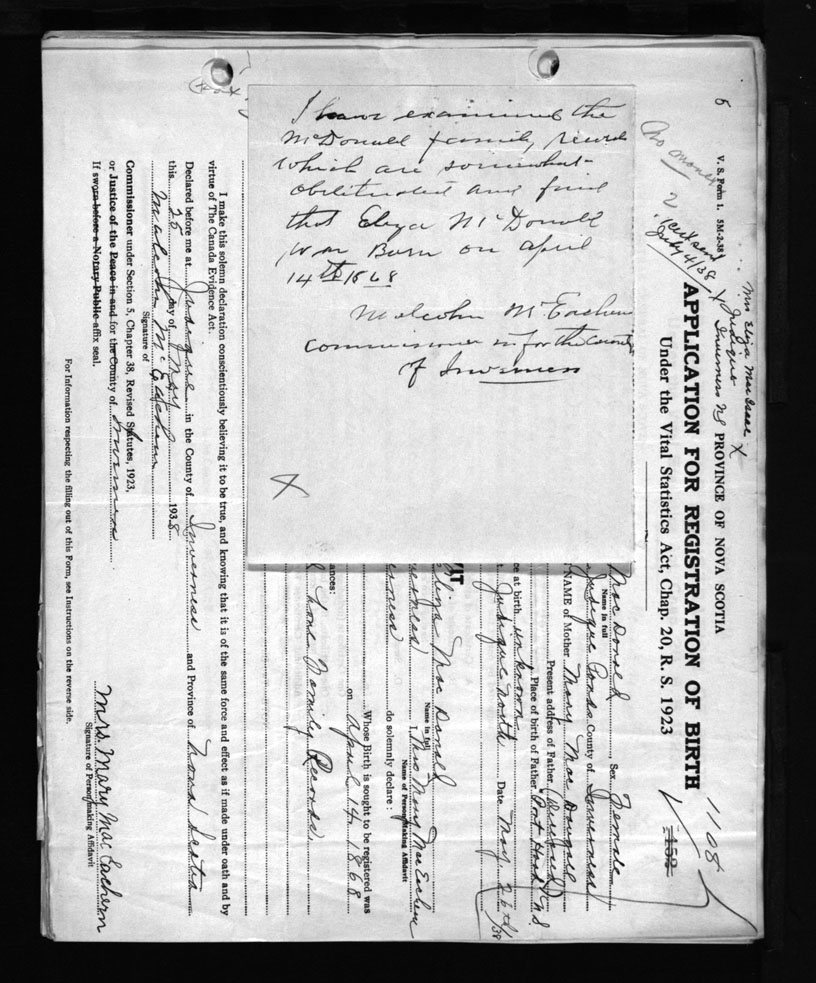 I have examined the
McDonall family record
which are somewhat
obliterated and find
that Eliza McDonall
was Born on April
14th 1868
Malcolm McEachern
Commissioner in for the County
of Inverness
X
5
V. S. Form 1. 5M-2-38
No money
July 4/38
Mrs Eliza MacIsaac X
Judique
Inverness NS
PROVINCE OF NOVA SCOTIA
APPLICATION FOR REGISTRATION OF BIRTH
Under the Vital Statistics Act, Chap. 20, R. S. 1923
1108
152
MacDonald Sex Female
Name in full
Judique Ponds County of Inverness
NAME of Mother Mary MacDougall
Present address of Father (Deceased)
Place of birth of Father Port Hood N.S.
ce at birth unknown
t. Judique North Date May 26th/38
VIT
Eliza MacDonald
Name in full
I, Mrs Mary MacEachern
Name of Person making Affidavit
erness do solemnly declare:
Whose Birth is sought to be registered was
on April 14 1868
ances:
home Family Records
I make this solemn declaration conscientiously believing it to be true, and knowing that it is of the same force and effect as if made under oath and by
virtue of The Canada Evidence Act.
Declared before me at Judique in the County of Inverness and Province of Nova Scotia
this 25 day of May 1938
Malcolm McEachern
Signature of
Mrs. Mary MacEachern
Signature of Person making Affidavit
Commissioner under Section 5, Chapter 38, Revised Statutes, 1923,
or Justice of the Peace in and for the County of Inverness
If sworn before a Notary Public affix seal.
For Information respecting the filling out of this Form, see Instructions on the reverse side.